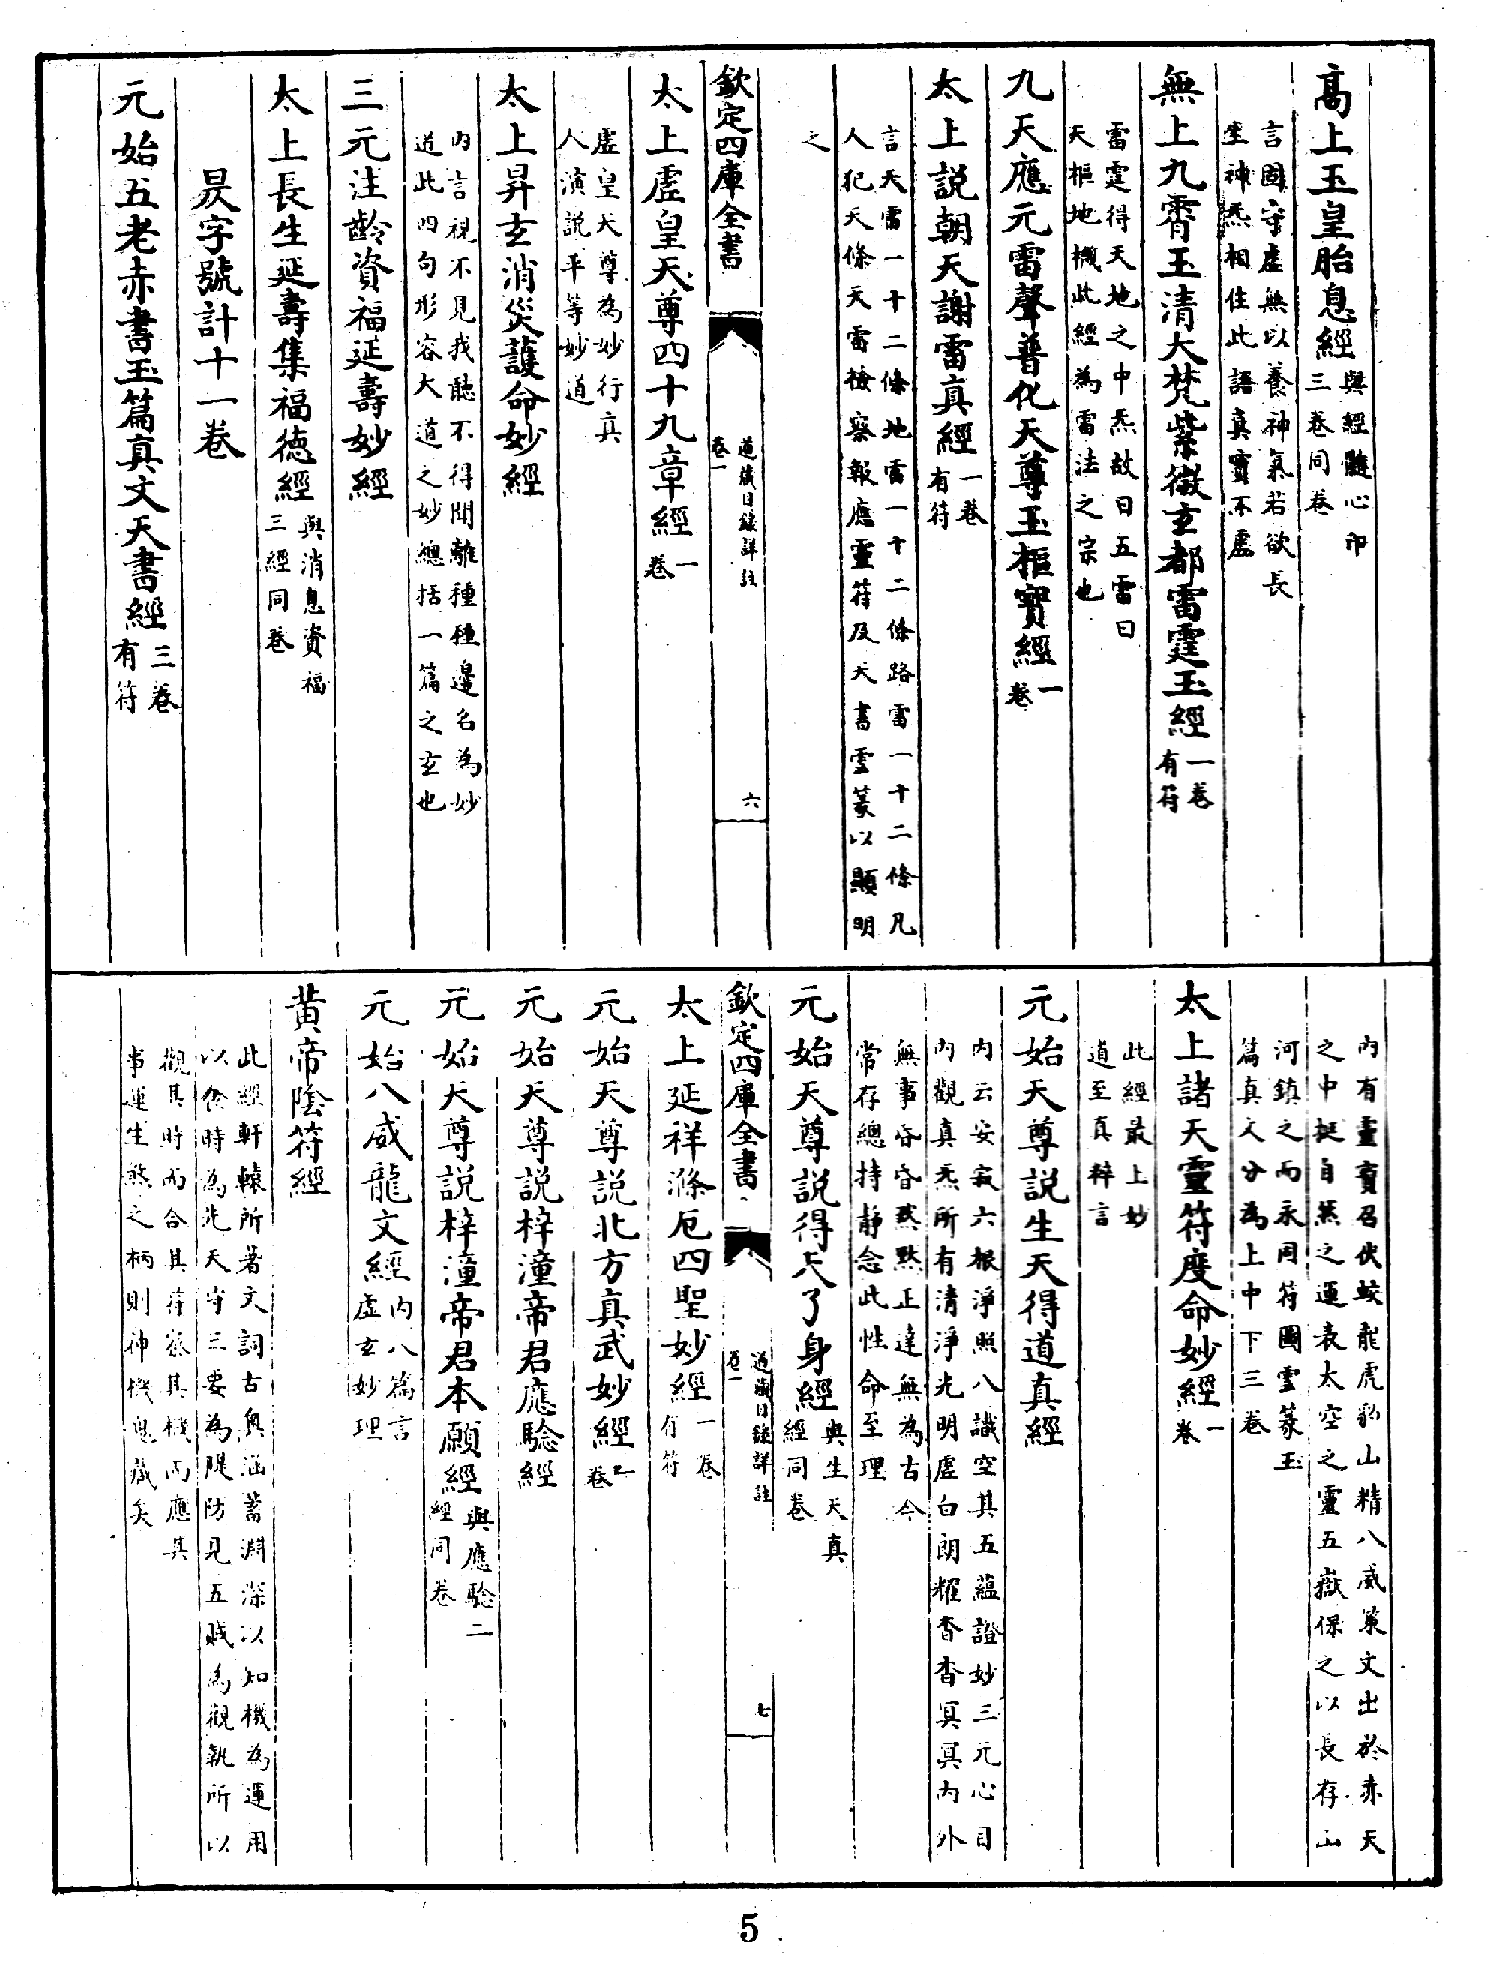 高上玉皇胎息經與經髓心印
三卷同卷
言固守虛無以養神氣若欲長
生神炁相住此語真實不虛
無上九霄玉清大梵紫微玄都雷霆玉經一卷
有符
雷霆得天地之中炁故曰五雷曰
天樞地機此經為雷法之宗也
九天應元雷聲普化天尊玉樞寶經一
卷
太上説朝天謝雷真經一卷
有符
言天雷一十二條地雷一十二條路雷一十二條凡
人犯天條天雷檢察報應靈符及天書雲篆以顯明
之
欽定四庫全書
道藏目錄詳註
卷一
六
太上虛皇天尊四十九章經一
卷
虛皇天尊為妙行真
人演説平等妙道
太上昇玄消災護命妙經
内言視不見我聽不得聞離種種邊名為妙
道此四句形容大道之妙總括一篇之玄也
三元注齡資福延壽妙經
太上長生延壽集福德經與消息資福
三經同卷
昃字號計十一卷
元始五老赤書玉篇真文天書經三卷
有符
内有靈寶召伏蛟龍虎豹山精八威策文出於赤天
之中挺自然之運表太空之靈五嶽保之以長存山
河鎮之而永固符圖雲篆玉
篇真文分為上中下三卷
太上諸天靈符度命妙經一
卷
此經最上妙
道至真粹言
元始天尊説生天得道真經
内云安寂六根淨照八識空其五蘊證妙三元心目
内觀真炁所有清淨光明虛白朗耀杳杳冥冥内外
無事昏昏默默正達無為古今
常存總持靜念此性命至理
元始天尊説得道了身經與生天真
經同卷
欽定四庫全書
道藏目錄詳註
卷一
七
太上延祥滌厄四聖妙經一卷
有符
元始天尊説北方真武妙經一
卷
元始天尊説梓潼帝君應驗經
元始天尊説梓潼帝君本願經與應驗二
經同卷
元始八威龍文經内八篇言
虛玄妙理
黃帝陰符經
此經軒轅所著文詞古奧涵蓄淵深以知機為運用
以食時為先天守三要為隄防見五賊為觀執所以
觀其時而合其符察其機而應其
事運生煞之柄則神機鬼藏矣
5